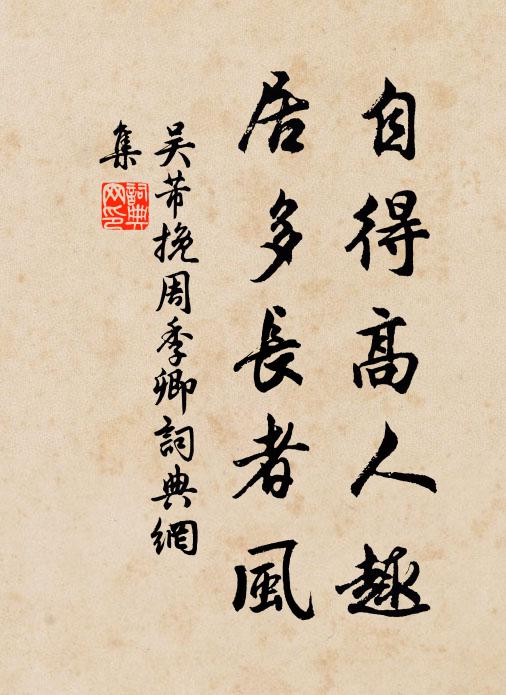 自得高人趣
居多長者風
吳芾挽周季卿詞典網
集
詞典
网印